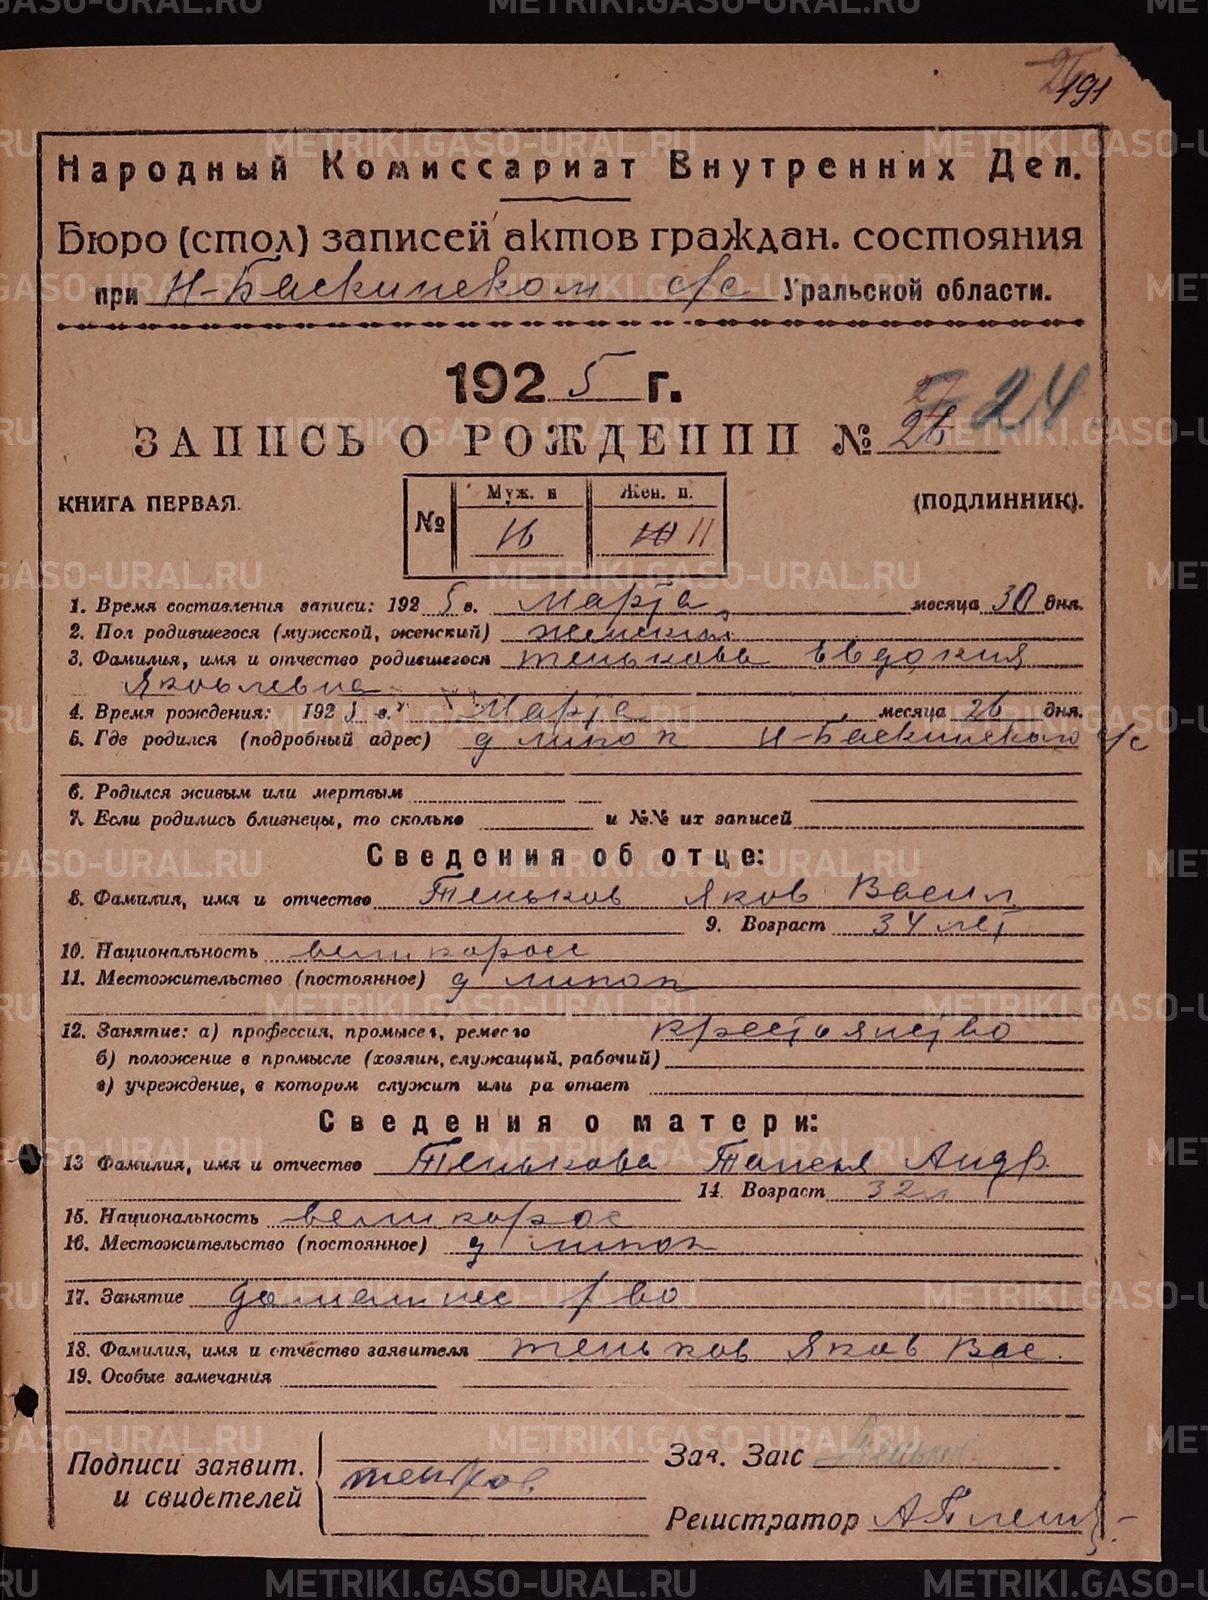 191
Народный Комиссариат Внутренних Дел.
Бюро (стол) записей актов граждан. состояния
при Н-Баскинском с/с Уральской области.
1925 г.
ЗАПИСЬ О РОЖДЕНИИ № 26 24
КНИГА ПЕРВАЯ. (ПОДЛИННИК).
№ Муж. п Жен. п.
16 10 11
1. Время составления записи: 1925 г. Марта месяца 30 дня.
2. Пол родившегося (мужской, женский) женский
3. Фамилия, имя и отчество родившегося Тенькова Евдокия
Яковлевна
4. Время рождения: 1925 г. Марта месяца 26 дня.
5. Где родился (подробный адрес) д Липок Н-Баскинского с/с
6. Родился живым или мертвым
7. Если родились близнецы, то сколько и №№ их записей
Сведения об отце:
8. Фамилия, имя и отчество Теньков Яков Васил
9. Возраст 34 лет
10. Национальность великорос
11. Местожительство (постоянное) д Липок
12. Занятие: а) профессия, промысел, ремесло крестьянство
б) положение в промысле (хозяин, служащий, рабочий)
в) учреждение, в котором служит или ра отает
Сведения о матери:
13 Фамилия, имя и отчество Тенькова Таисья Андр.
14. Возраст 32 л
15. Национальность великорос
16. Местожительство (постоянное) д Липок
17. Занятие домашнес т/во
18. Фамилия, имя и отчество заявителя Теньков Яков Вас.
19. Особые замечания
Подписи заявит. Зав. Загс
и свидетелей Теньков
Регистратор
METRIKI.GASO-URAL.RU